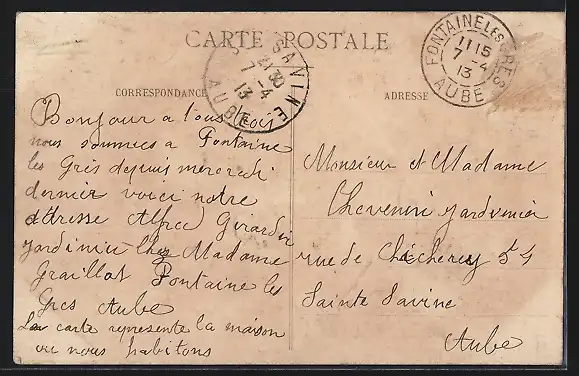 CARTE POSTALE
CORRESPONDANCE
ADRESSE
SAVINE
21 30
7 - 4
13
AUBE
FONTAINE LES GRES
11 15
7 - 4
13
AUBE
Bonjour a tous trois
nous sommes a Fontaine
les Gris depuis mercredi
dernier voici notre
adresse Alfred Girardin
jardinier chez Madame
Graillot Fontaine les
Gres Aube
La carte represente la maison
ou nous habitons
Monsieur et Madame
jardinier
rue de 54
Sainte Savine
Aube